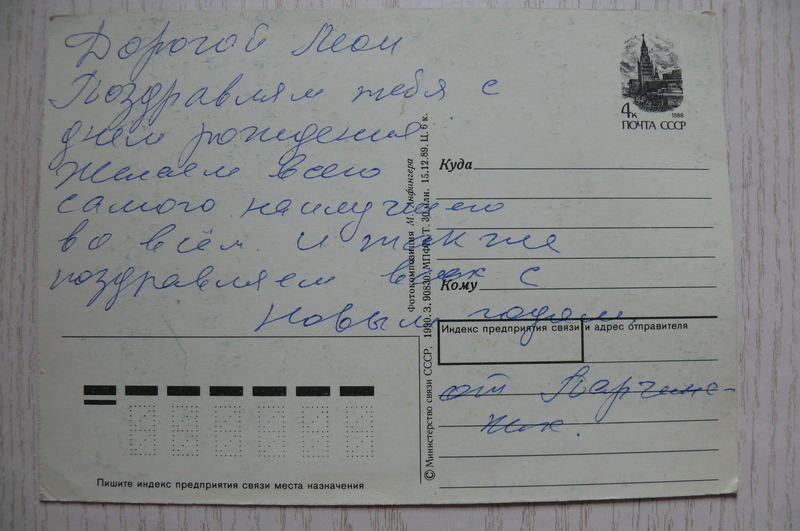 Дорогой Леон
Поздравляем тебя с
днём рождения
Желаем всего
самого наилучшего
во всём. и также
поздравляем всех с
Новым годом.
4к 1988
ПОЧТА СССР
Куда
Кому
Индекс предприятия связи и адрес отправителя
от
Пишите индекс предприятия связи места назначения
© Министерство связи СССР. 1990. З. 90830. МПФГ. Т. 30 млн. 15.12.89. Ц. 6 к.
Фотокомпозиция М.